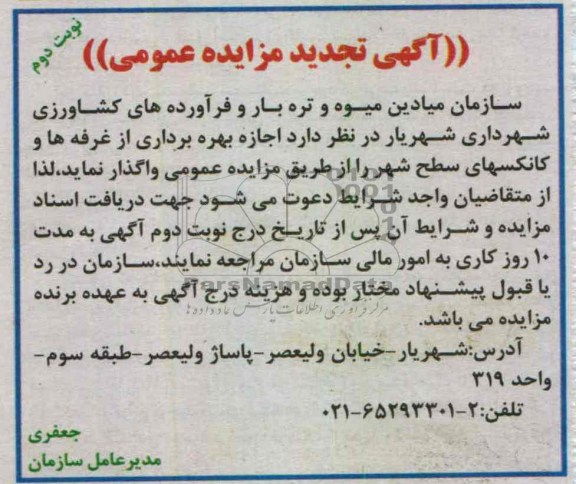 نوبت دوم
((آگهی تجدید مزایده عمومی))
سازمان میادین میوه و تره بار و فرآورده های کشاورزی
شهرداری شهریار در نظر دارد اجازه بهره برداری از غرفه ها و
کانکسهای سطح شهر را از طریق مزایده عمومی واگذار نماید،لذا
از متقاضیان واجد شرایط دعوت می شود جهت دریافت اسناد
مزایده و شرایط آن پس از تاریخ درج نوبت دوم آگهی به مدت
۱۰ روز کاری به امور مالی سازمان مراجعه نمایند،سازمان در رد
یا قبول پیشنهاد مختار بوده و هزینه درج آگهی به عهده برنده
مزایده می باشد.
آدرس:شهریار-خیابان ولیعصر-پاساژ ولیعصر-طبقه سوم-
واحد ۳۱۹
تلفن:۲-۶۵۲۹۳۳۰۱-۰۲۱
جعفری
مدیرعامل سازمان
ParsNamadData